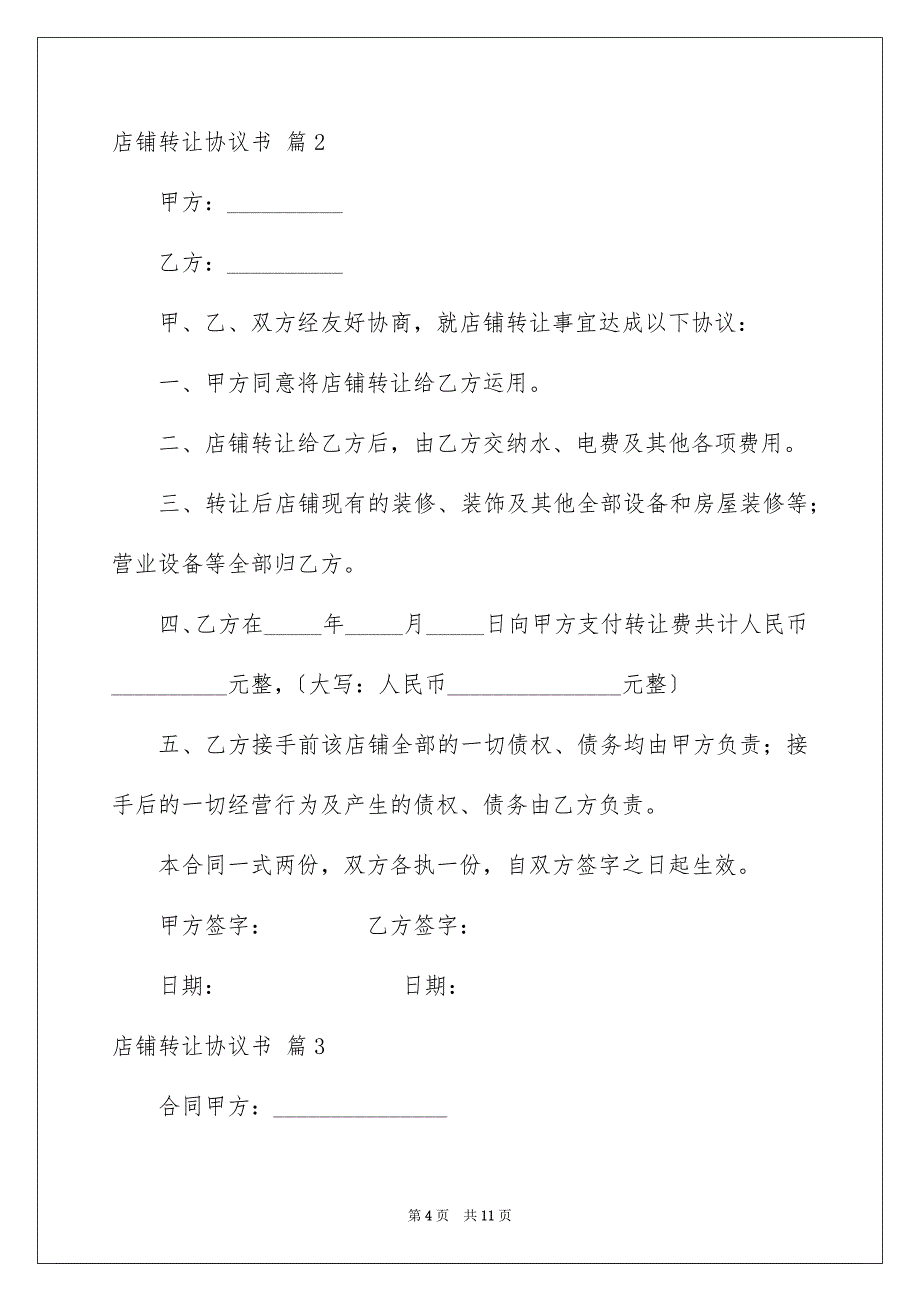 店铺转让协议书 篇2
甲方：__________
乙方：__________
甲、乙、双方经友好协商，就店铺转让事宜达成以下协议：
一、甲方同意将店铺转让给乙方运用。
二、店铺转让给乙方后，由乙方交纳水、电费及其他各项费用。
三、转让后店铺现有的装修、装饰及其他全部设备和房屋装修等；
营业设备等全部归乙方。
四、乙方在_____年_____月_____日向甲方支付转让费共计人民币
__________元整，〔大写：人民币_______________元整〕
五、乙方接手前该店铺全部的一切债权、债务均由甲方负责；接
手后的一切经营行为及产生的债权、债务由乙方负责。
本合同一式两份，双方各执一份，自双方签字之日起生效。
甲方签字： 乙方签字：
日期： 日期：
店铺转让协议书 篇3
合同甲方：_______________
第 4 页 共 11 页